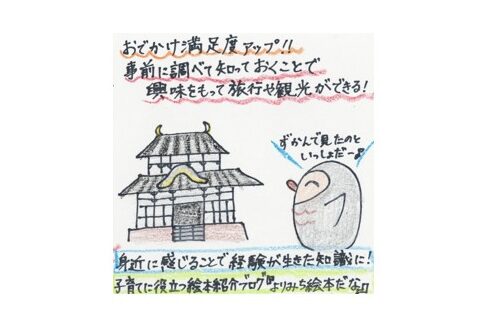 おでかけ満足度アップ!!
事前に調べて知っておくことで
興味をもって旅行や観光ができる!
ずかんで見たのと
いっしょだー♪
身近に感じることで経験が生きた知識に!
子育てに役立つ絵本紹介ブログ『よりみち絵本だな』